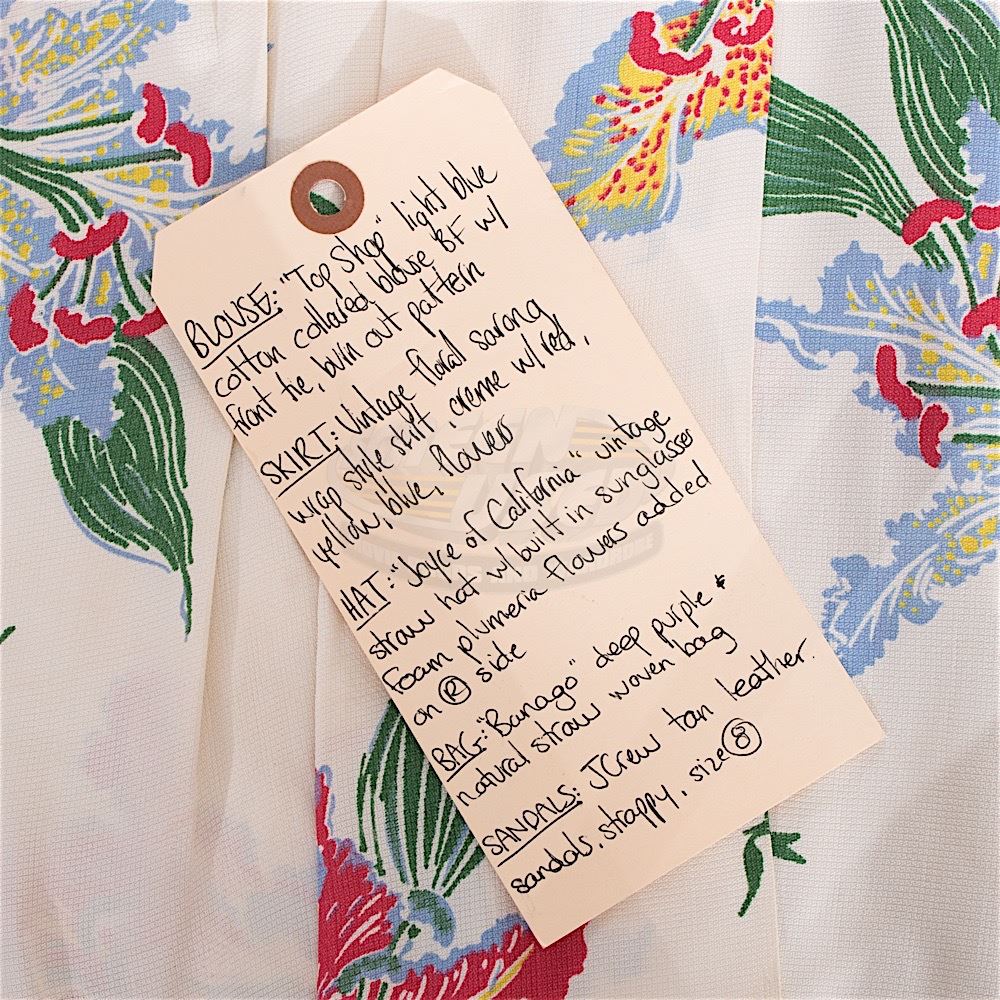 BLOUSE: "Top Shop" light blue
cotton collared blouse BF w/
front tie, burn out pattern
SKIRT: Vintage floral sarong
wrap style skirt, creme w/ red,
yellow, blue, flowers
HAT: "Joyce of California" vintage
straw hat w/ built in sunglasses
Foam plumeria flowers added
on Ⓡ side
BAG: "Banago" deep purple &
natural straw woven bag
SANDALS: JCrew tan leather.
sandals, strappy, size ⑧